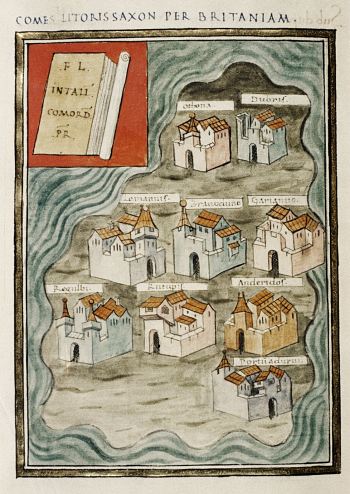 COMES LITORIS SAXON PER BRITANIAM.
FL.
INTALL
COMORD
PR.
Othona.
Dubris.
Lemannis.
Branoduno.
Garianno.
Regulbi.
Rutupis.
Anderidos.
Portuadurni.